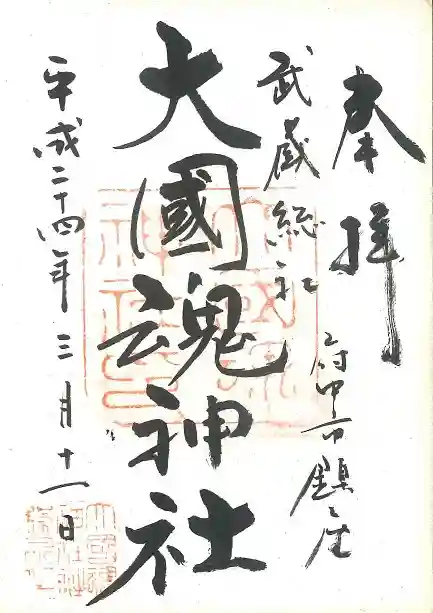 奉拝
府中市鎮座
武蔵総社
大國魂神社
平成二十四年三月十一日